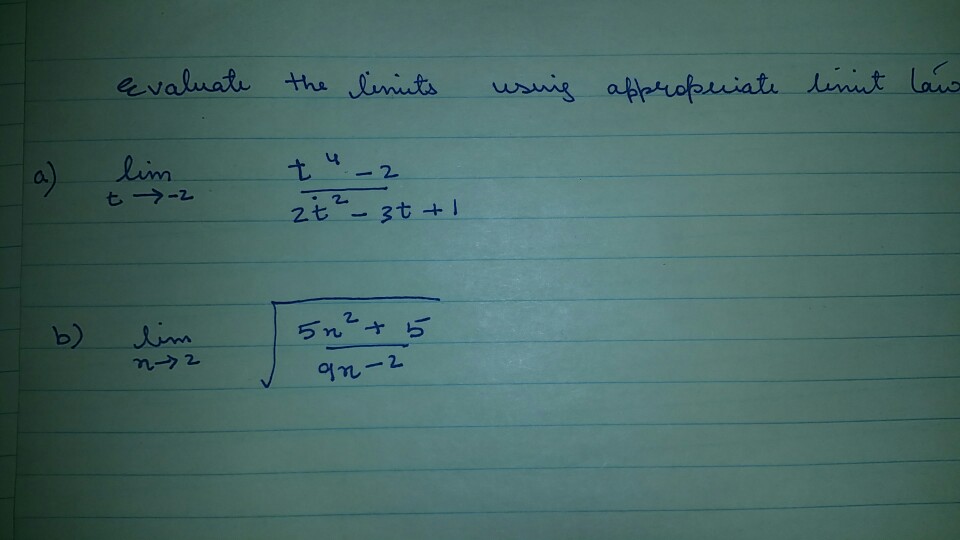 Evaluate the limits using appropriate limit law
a) lim t→-2 (t^4 - 2) / (2t^2 - 3t + 1)
b) lim x→2 √((5x^2 + 5) / (9x - 2))